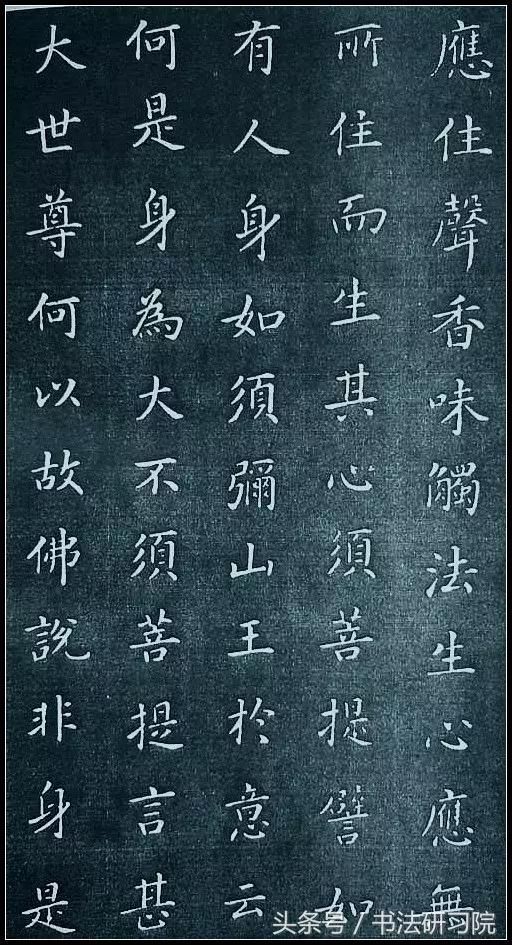 應住聲香味觸法生心應無
所住而生其心須菩提譬如
有人身如須彌山王於意云
何是身為大不須菩提言甚
大世尊何以故佛說非身是
头条号/书法研习院